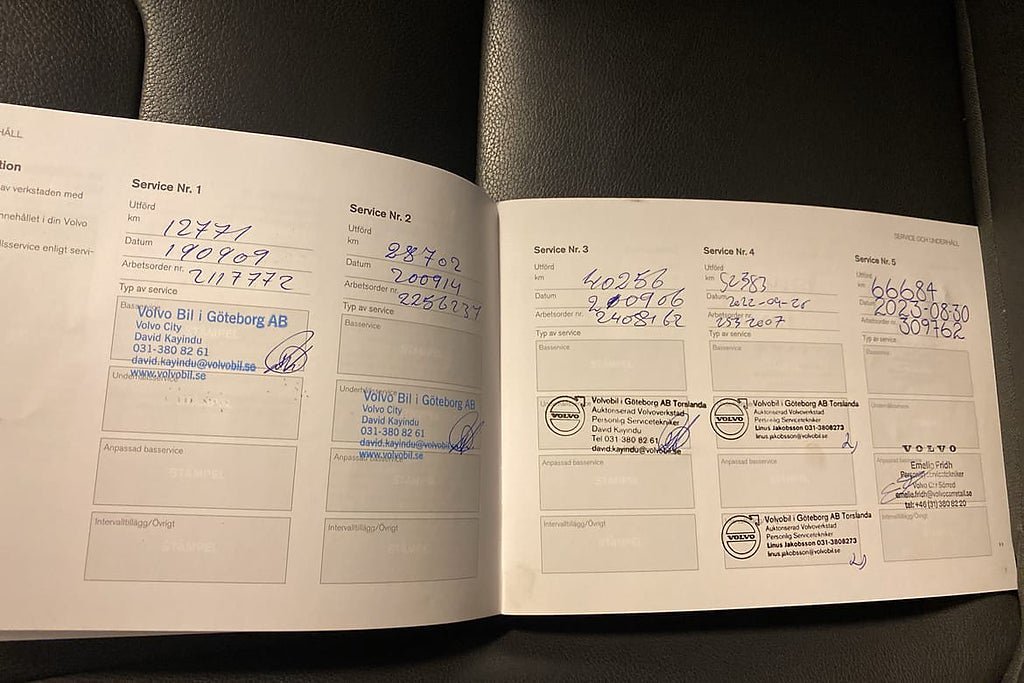 HÅLL
tion
av verkstaden med
nnehållet i din Volvo
llsservice enligt servi-
Service Nr. 1
Utförd
km 12771
Datum 190909
Arbetsorder nr. 2117772
Typ av service
Volvo Bil i Göteborg AB
Volvo City
David Kayindu
031-380 82 61
david.kayindu@volvobil.se
www.volvobil.se
Underhållsservice
Anpassad basservice
STÄMPEL
Intervalltillägg/Övrigt
STÄMPEL
Service Nr. 2
Utförd
km 28702
Datum 200914
Arbetsorder nr. 2256237
Typ av service
Basservice
Volvo Bil i Göteborg AB
Volvo City
David Kayindu
031-380 82 61
david.kayindu@volvobil.se
www.volvobil.se
Anpassad basservice
Intervalltillägg/Övrigt
SERVICE OCH UNDERHÅLL
Service Nr. 3
Utförd
km 40256
Datum 210906
Arbetsorder nr. 2408162
Typ av service
Basservice
VOLVO
Volvobil i Göteborg AB Torslanda
Auktoriserad Volvoverkstad
Personlig Servicetekniker
David Kayindu
Tel 031-380 82 61
david.kayindu@volvobil.se
Anpassad basservice
STÄMPEL
Intervalltillägg/Övrigt
STÄMPEL
Service Nr. 4
Utförd
km 52383
Datum 2022-09-26
Arbetsorder nr.
Typ av service
Basservice
VOLVO
Volvobil i Göteborg AB Torslanda
Auktoriserad Volvoverkstad
Personlig Servicetekniker
Linus Jakobsson 031-3808273
linus.jakobsson@volvobil.se
Anpassad basservice
VOLVO
Volvobil i Göteborg AB Torslanda
Auktoriserad Volvoverkstad
Personlig Servicetekniker
Linus Jakobsson 031-3808273
linus.jakobsson@volvobil.se
Service Nr. 5
Utförd
km 66684
Datum 2023-08-30
Arbetsorder nr. 309762
Typ av service
Basservice
Underhållsservice
VOLVO
Anpassad basservice
Emelie Fridh
Personlig servicetekniker
Volvo Car Sörred
emelie.fridh@volvocarretail.se
tel: +46 (31) 380 82 20
Intervalltillägg/Övrigt